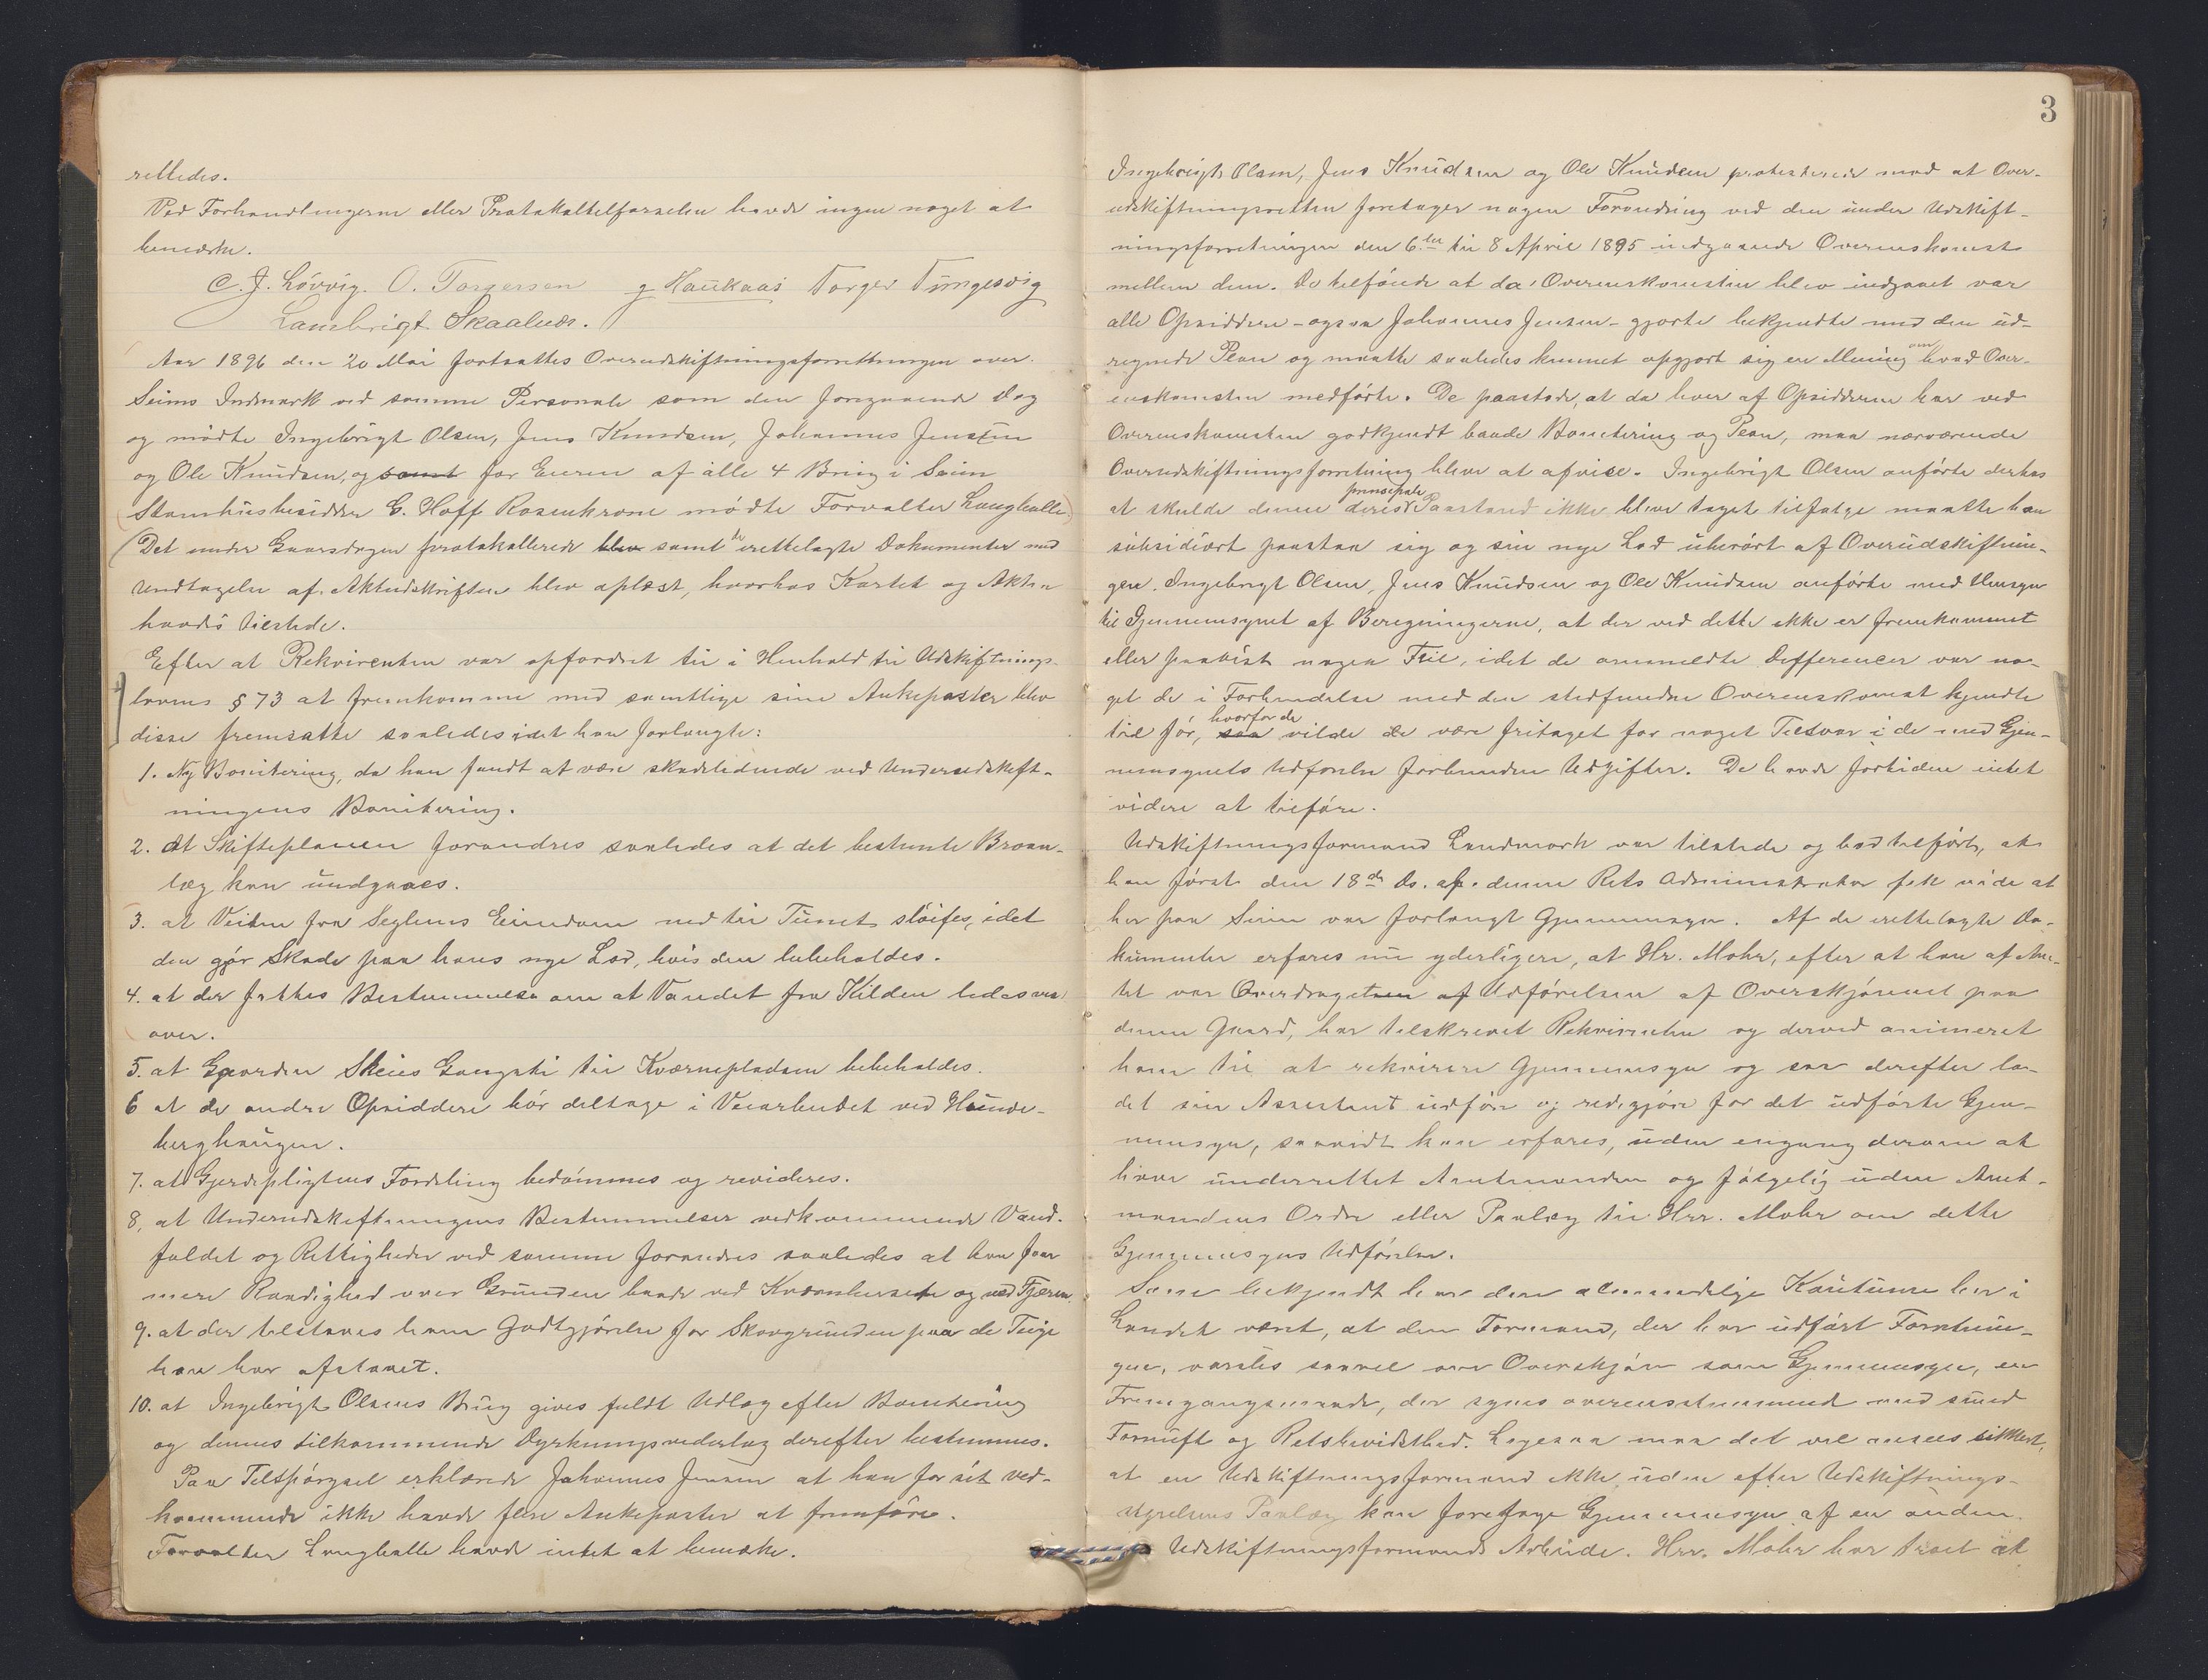 rettedes.
Ved Forhandlingerne eller Protokoltilførselen havde ingen noget at
bemærke.
C. J. Løvvig. O. Torgersen g Haukaas Torger Tungesvig
Lambrigt Skaaluær.
Aar 1896 den 20 Mai fortsattes Overudskiftningsforretningen over
Seims Indmark ved samme Personale som den foregaaende Dag
og mødte Ingebrigt Olsen, Jens Knudsen, Johannes Jensen
og Ole Knudsen, og samt for Eieren af alle 4 Brug i Seim
Stamhusbesidder E. Hoff Rosenkrone mødte Forvalter Langballe.
Det under Gaarsdagen protokollerede blev samt de irettelagte Dokumenter med
Undtagelse af Aktudskriften blev oplæst, hvorhos Kartet og Akten
havdes tilstede.
Efter at Rekvirenten var opfordret til i Henhold til Udskiftnings-
lovens § 73 at fremkomme med samtlige sine Ankeposter blev
disse fremsatte saaledes idet han forlangte:
1. Ny Bonitering, da han fandt at være skadelidende ved Underudskift-
ningens Bonitering.
2. At Skifteplanen forandres saaledes at det bestemte Broan-
læg kan undgaaes.
3. at Veiten fra Seglems Eiendom ned til Tunet sløifes, idet
den gjør Skade paa hans nye Lod, hvis den bibeholdes.
4. at der fattes Bestemmelse om at Vandet fra Kilden ledes
over.
5. at Gaarden Skeies Gangsti til Kværnepladsen bibeholdes.
6 at de andre Opsiddere bør deltage i Veiarbeidet ved Hunde-
berghaugen.
7. at Gjerdepligtens Fordeling bedømmes og revideres.
8, at Underudskiftningens Bestemmelser vedkommende Vand-
faldet og Rettigheder ved samme forandres saaledes at han faar
mere Raadighed over Grunden baade ved Kværnhusene og ved Fjæren.
9. at der tilstaaes ham Godtgjørelse for Skovgrunden paa de Teige
han har afstaaet.
10. at Ingebrigt Olsens Brug gives fuldt Udlæg efter Bonitering
og dennes tilkommende Dyrkningsvederlag derefter bestemmes.
Paa Tilspørgsel erklærede Johannes Jensen at han for sit Ved-
kommende ikke havde flere Ankeposter at fremføre.
Forvalter Langballe havde intet at bemærke.
3
Ingebrigt Olsen, Jens Knudsen og Ole Knudsen protesterede mod at Over-
udskiftningsretten foretager nogen Forandring ved den under Udskift-
ningsforretningen den 6.te til 8 April 1895 indgaaede Overenskomst
mellem dem. De tilføiede at da Overenskomsten blev indgaaet var
alle Opsiddere - ogsaa Johannes Jensen - gjorte bekjendte med den ud-
regnede Plan og maatte saaledes kunnet opgjort sig en Mening om hvad Over-
enskomsten medførte. De paastod, at da hver af Opsidderne har ved
Overenskomsten godkjendt baade Bonitering og Plan, maa nærværende
Overudskiftningsforretning blive at afvise. Ingebrigt Olsen anførte derhos
at skulde denne deres principale Paastand ikke blive taget tilfølge maatte han
subsidiært paastaa sig og sin nye Lod uberørt af Overudskiftnin-
gen. Ingebrigt Olsen, Jens Knudsen og Ole Knudsen anførte med Hensyn
til Gjennemsynet af Beregningerne, at der ved dette ikke er fremkommet
eller paavist nogen Feil, idet de anmeldte Differencer var no-
get de i Forbindelse med den stedfundne Overenskomst kjendte
til før, saa hvorfor de vilde de være fritaget for noget Tilsvar i de med Gjen-
nemsynets Udførelse forbundne Udgifter. De havde fortiden intet
videre at tilføre.
Udskiftningsformand Landmark var tilstede og bad tilført, at
han først den 18de ds. af denne Rets Administrator fik vide at
her paa Seim var forlangt Gjennemsyn. Af de irettelagte Do-
kumenter erfares nu yderligere, at Hr. Mohr, efter at han af Am-
tet var Overdraget af Udførelsen af Overskjønnet paa
denne Gaard, har tilskrevet Rekvirenten og derved animeret
ham til at rekvirere Gjennemsyn og saa derefter la-
det sin Assistent udføre og redegjøre for det udførte Gjen-
nemsyn, saavidt kan erfares, uden engang derom at
have underrettet Amtmanden og følgelig uden Amt-
mandens Ordre eller Paalæg til Hrr. Mohr om dette
Gjennemsyns Udførelse.
Som bekjendt har den almindelige Kautume her i
Landet været, at den Formand, der har udført Forretnin-
gen, varsles saavel om Overskjøn som Gjennemsyn, en
Fremgangsmaade, der synes overensstemmende med sund
Fornuft og Retsbevidsthed. Ligesaa maa det vel ansees sikkert,
at en Udskiftningsformand ikke uden efter Udskiftnings-
styrelsens Paalæg kan foretage Gjennemsyn af en anden
Udskiftningsformands Arbeide. Hrr. Mohr har troet at